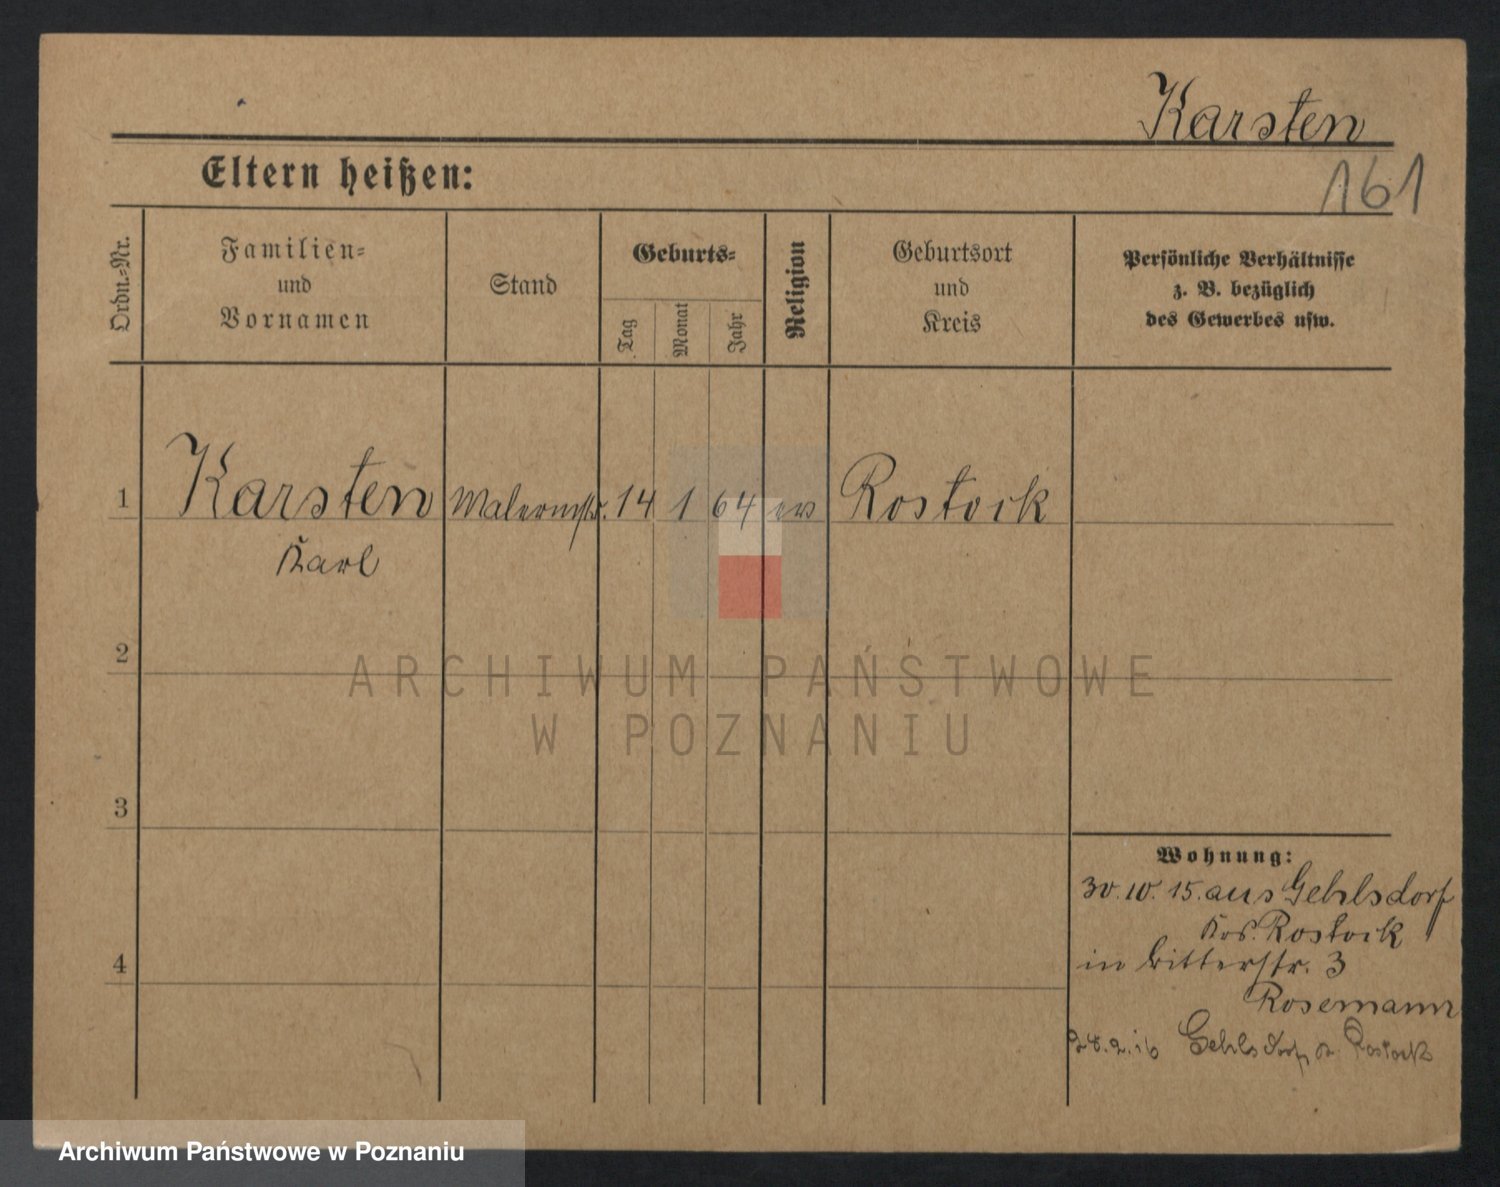 Karsten
161
Eltern heißen:
Ordn.=Nr.
Familien=
und
Vornamen
Stand
Geburts=
Tag
Monat
Jahr
Religion
Geburtsort
und
Kreis
Persönliche Verhältnisse
z. B. bezüglich
des Gewerbes usw.
1 Karsten Malermstr. 14 1 64 ev Rostock
Karl
2
3
4
Wohnung:
30.10.15. aus Gehlsdorf
Krs. Rostock
in Ritterstr. 3
Rosemann
28.2.16 Gehlsdorf Rostock
ARCHIWUM PAŃSTWOWE
W POZNANIU
Archiwum Państwowe w Poznaniu